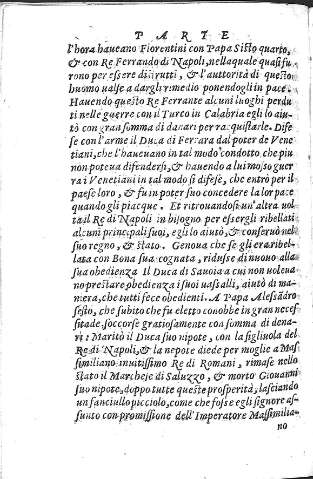 PARTE
l'hora haueano Fiorentini con Papa Sisto quarto,
& con Re Ferrando di Napoli, nella quale quasi fu
rono per essere distrutti, & l'auttorità di questo
huomo ualse a dargli rimedio ponendogli in pace.
Hauendo questo Re Ferrante alcuni luoghi perdu
ti nelle guerre con il Turco in Calabria egli lo aiu
tò con gran somma di danari per racquistarle. Dife
se con l'arme il Duca di Ferrara dal poter de Vene
tiani, che l'haueuano in tal modo condotto che piu
non poteua difendersi, & hauendo a lui mosso guer
ra i Venetiani in tal modo si difese, che entrò per il
paese loro, & fu in poter suo concedere la lor pace
quando gli piacque. Et ritrouandosi un'altra uol
ta il Re di Napoli in bisogno per essergli ribellati
alcuni principali suoi, egli lo aiutò, & conseruò nel
suo regno, & stato. Genoua che se gli era ribel-
lata con Bona sua cognata, ridusse di nuouo alla
sua obedienza Il Duca di Sauoia a cui non uoleua
no prestare obedienza i suoi uassalli, aiutò di ma-
niera, che tutti fece obedienti. A Papa Alessãdro
sesto, che subito che fu eletto conobbe in gran neces
sità de, soccorse gratiosamente con somma di dena-
ri: Maritò il Duca suo nipote, con la figliuola del
Re di Napoli, & la nepote diede per moglie a Mas
similiano inuitissimo Re di Romani, rimase nello
stato il Marchese di Saluzzo, & morto Giouanni
suo nipote, doppo tutte queste prosperità, lasciando
un fanciullo picciolo, come che fosse egli signore as-
sunto con promissione dell'Imperatore Massimilia-
no